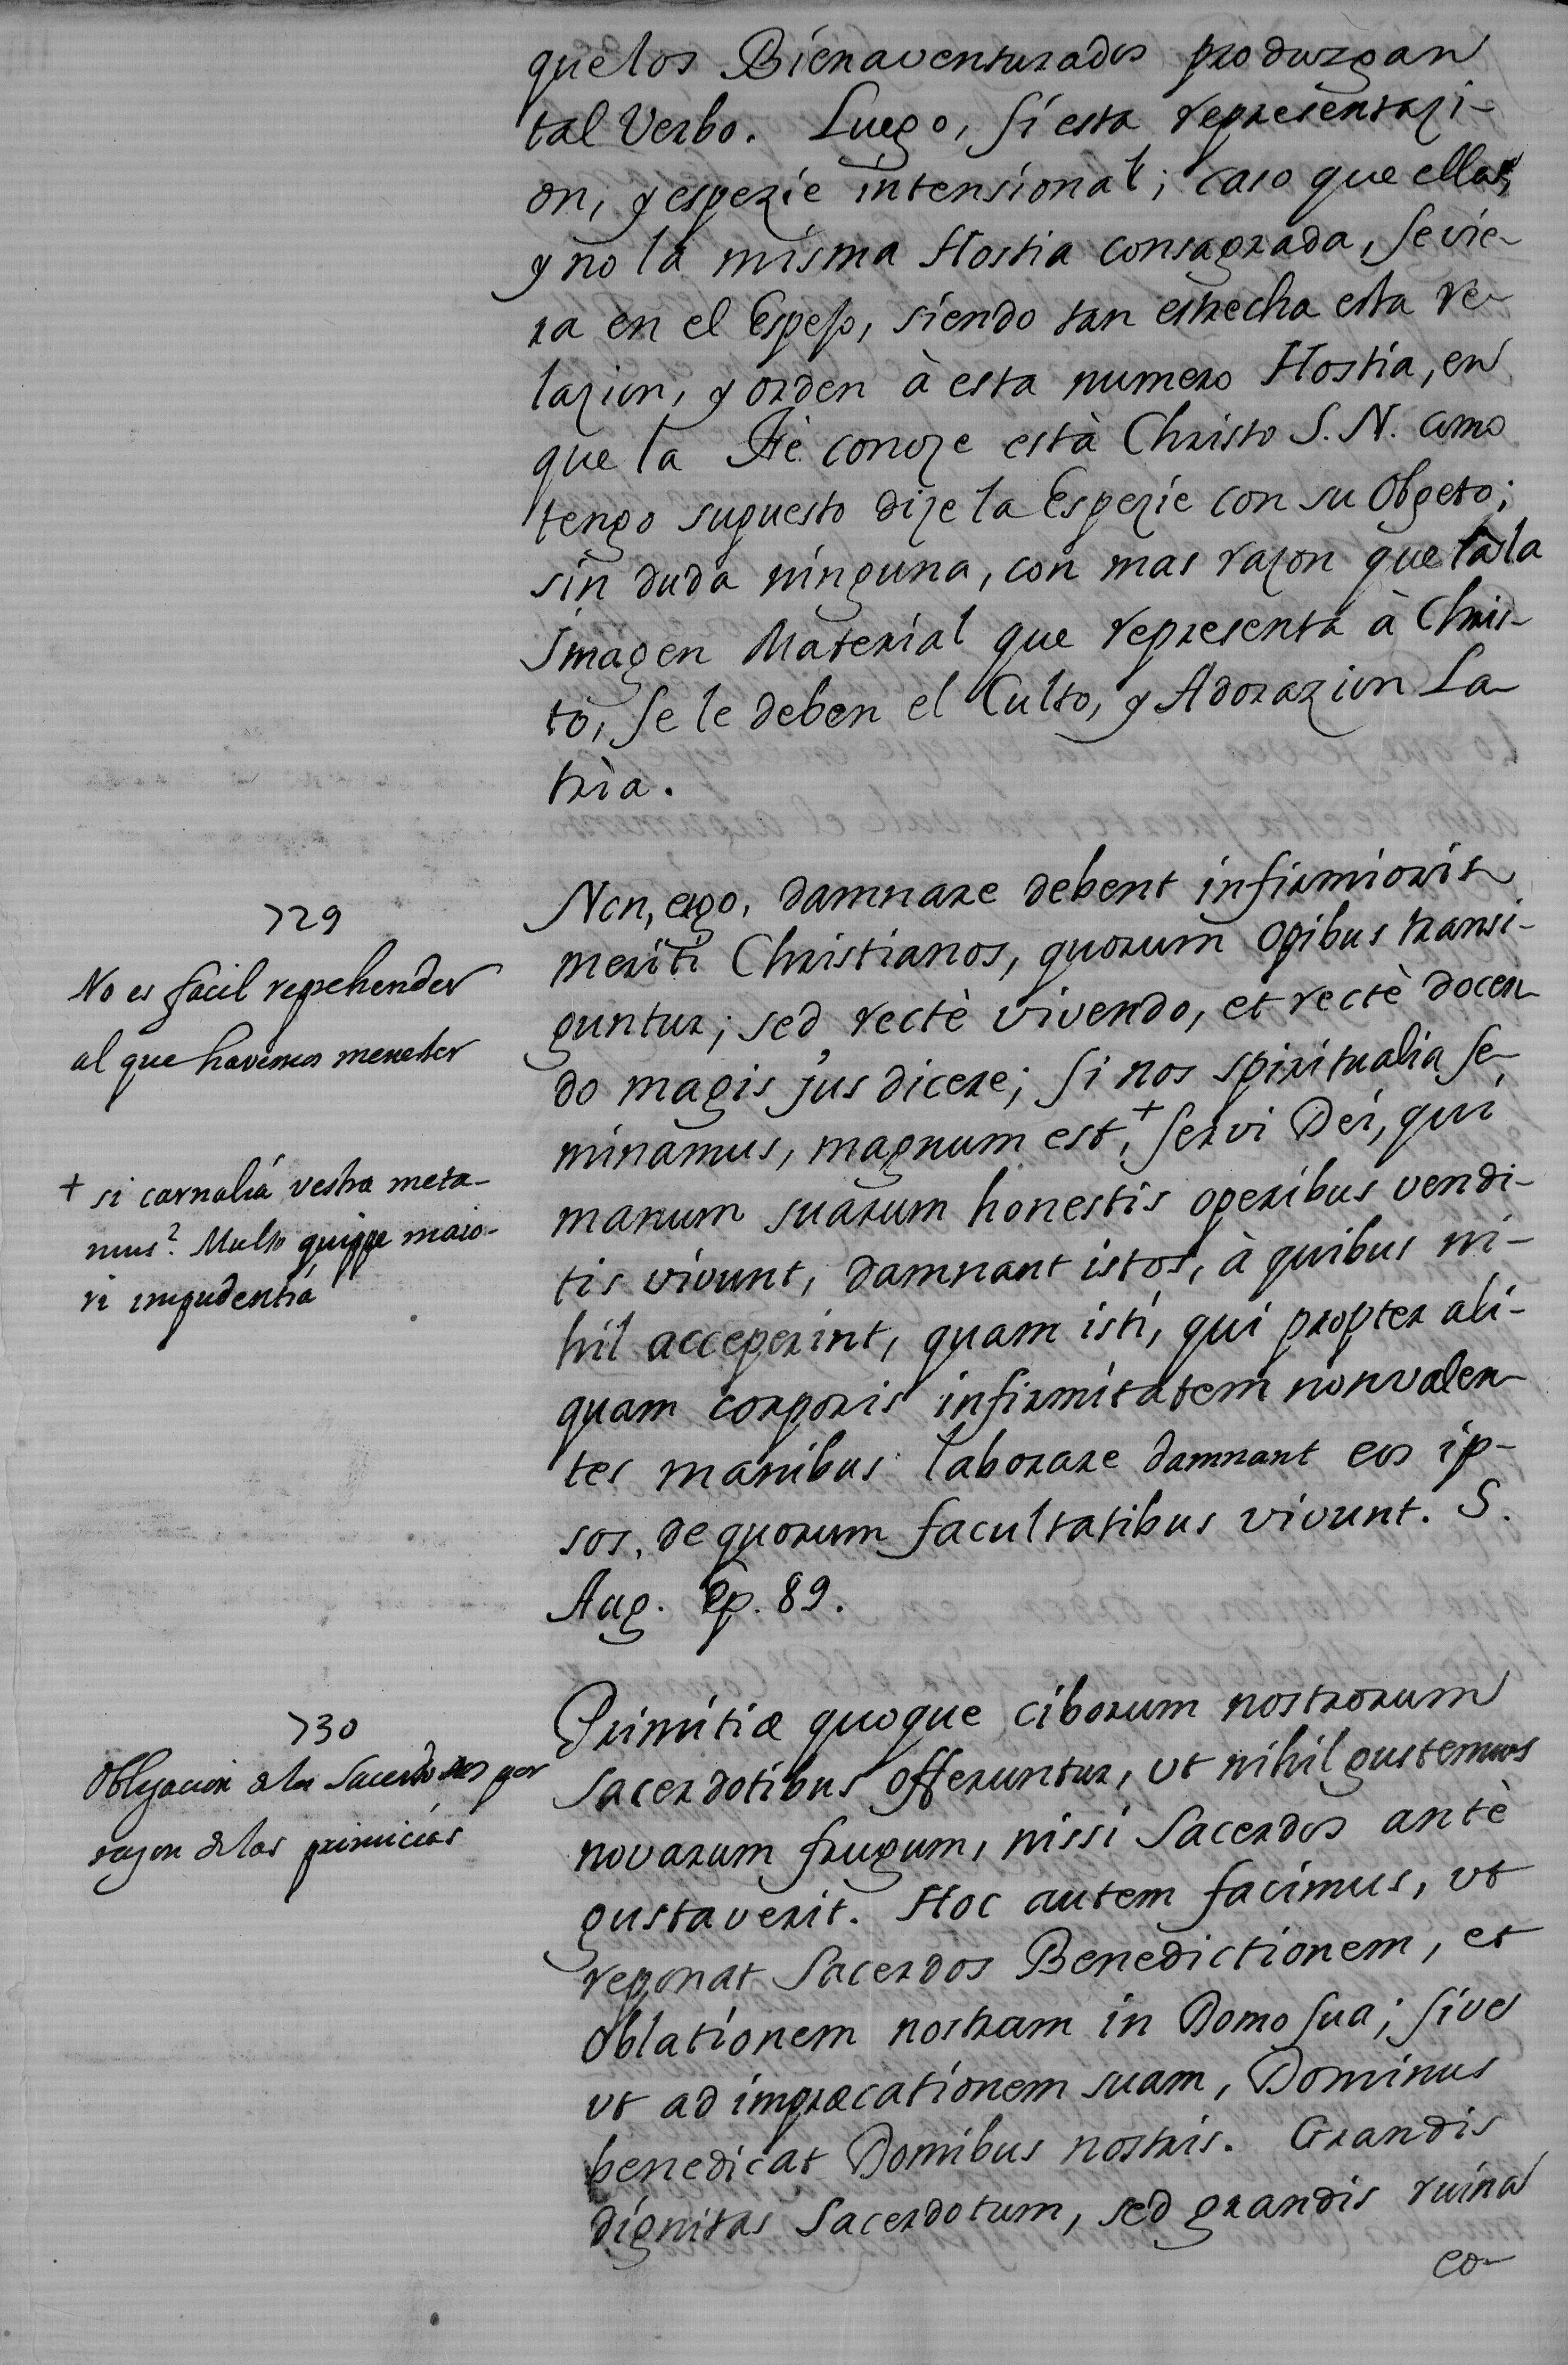 que los Bienaventurados produzgan
tal Verbo. Luego, si esta representazi-
on, y espezie intensional; caso que ella,
y no la misma Hostia consagrada, se vie-
ra en el Espejo, siendo tan estrecha esta re-
lazion, y orden à esta numero Hostia, en
que la Fè conoze està Christo S. N. como
tengo supuesto dize la Espezie con su Obgeto;
sin duda ninguna, con mas razon que à la
Imagen Material que representa à Chris-
to, se le deben el Culto, y Adorazion La-
tria.
729
No es facil reprehender
al que havemos menester
Non, ergo, damnare debent infirmioris
meriti Christianos, quorum opibus transi-
guntur; sed rectè vivendo, et rectè docen-
do magis jus dicere; si nos spiritualia se-
minamus, magnum est,+ servi Dei, qui
manum suarum honestis operibus vendi-
tis vivunt, damnant istos, à quibus ni-
hil acceperint, quam isti, qui propter ali-
quam corporis infirmitatem non valen-
tes manibus laborare damnant eos ip-
sos, de quorum facultatibus vivunt. S.
Aug. Ep. 89.
+ si carnalia vestra meta-
mus? Multo quippe maio-
ri impudentia
730
Obligacion de los Sacerdotes por
razon de las primicias
Primitiæ quoque ciborum nostrorum
Sacerdotibus offeruntur, ut nihil gustemus
novarum frugum, nissi Sacerdos antè
gustaverit. Hoc autem facimus, ut
reponat Sacerdos Benedictionem, et
Oblationem nostram in Domo sua; sive
ut ad impræcationem suam, Dominus
benedicat Domibus nostris. Grandis
dignitas Sacerdotum, sed grandis ruina
eo-